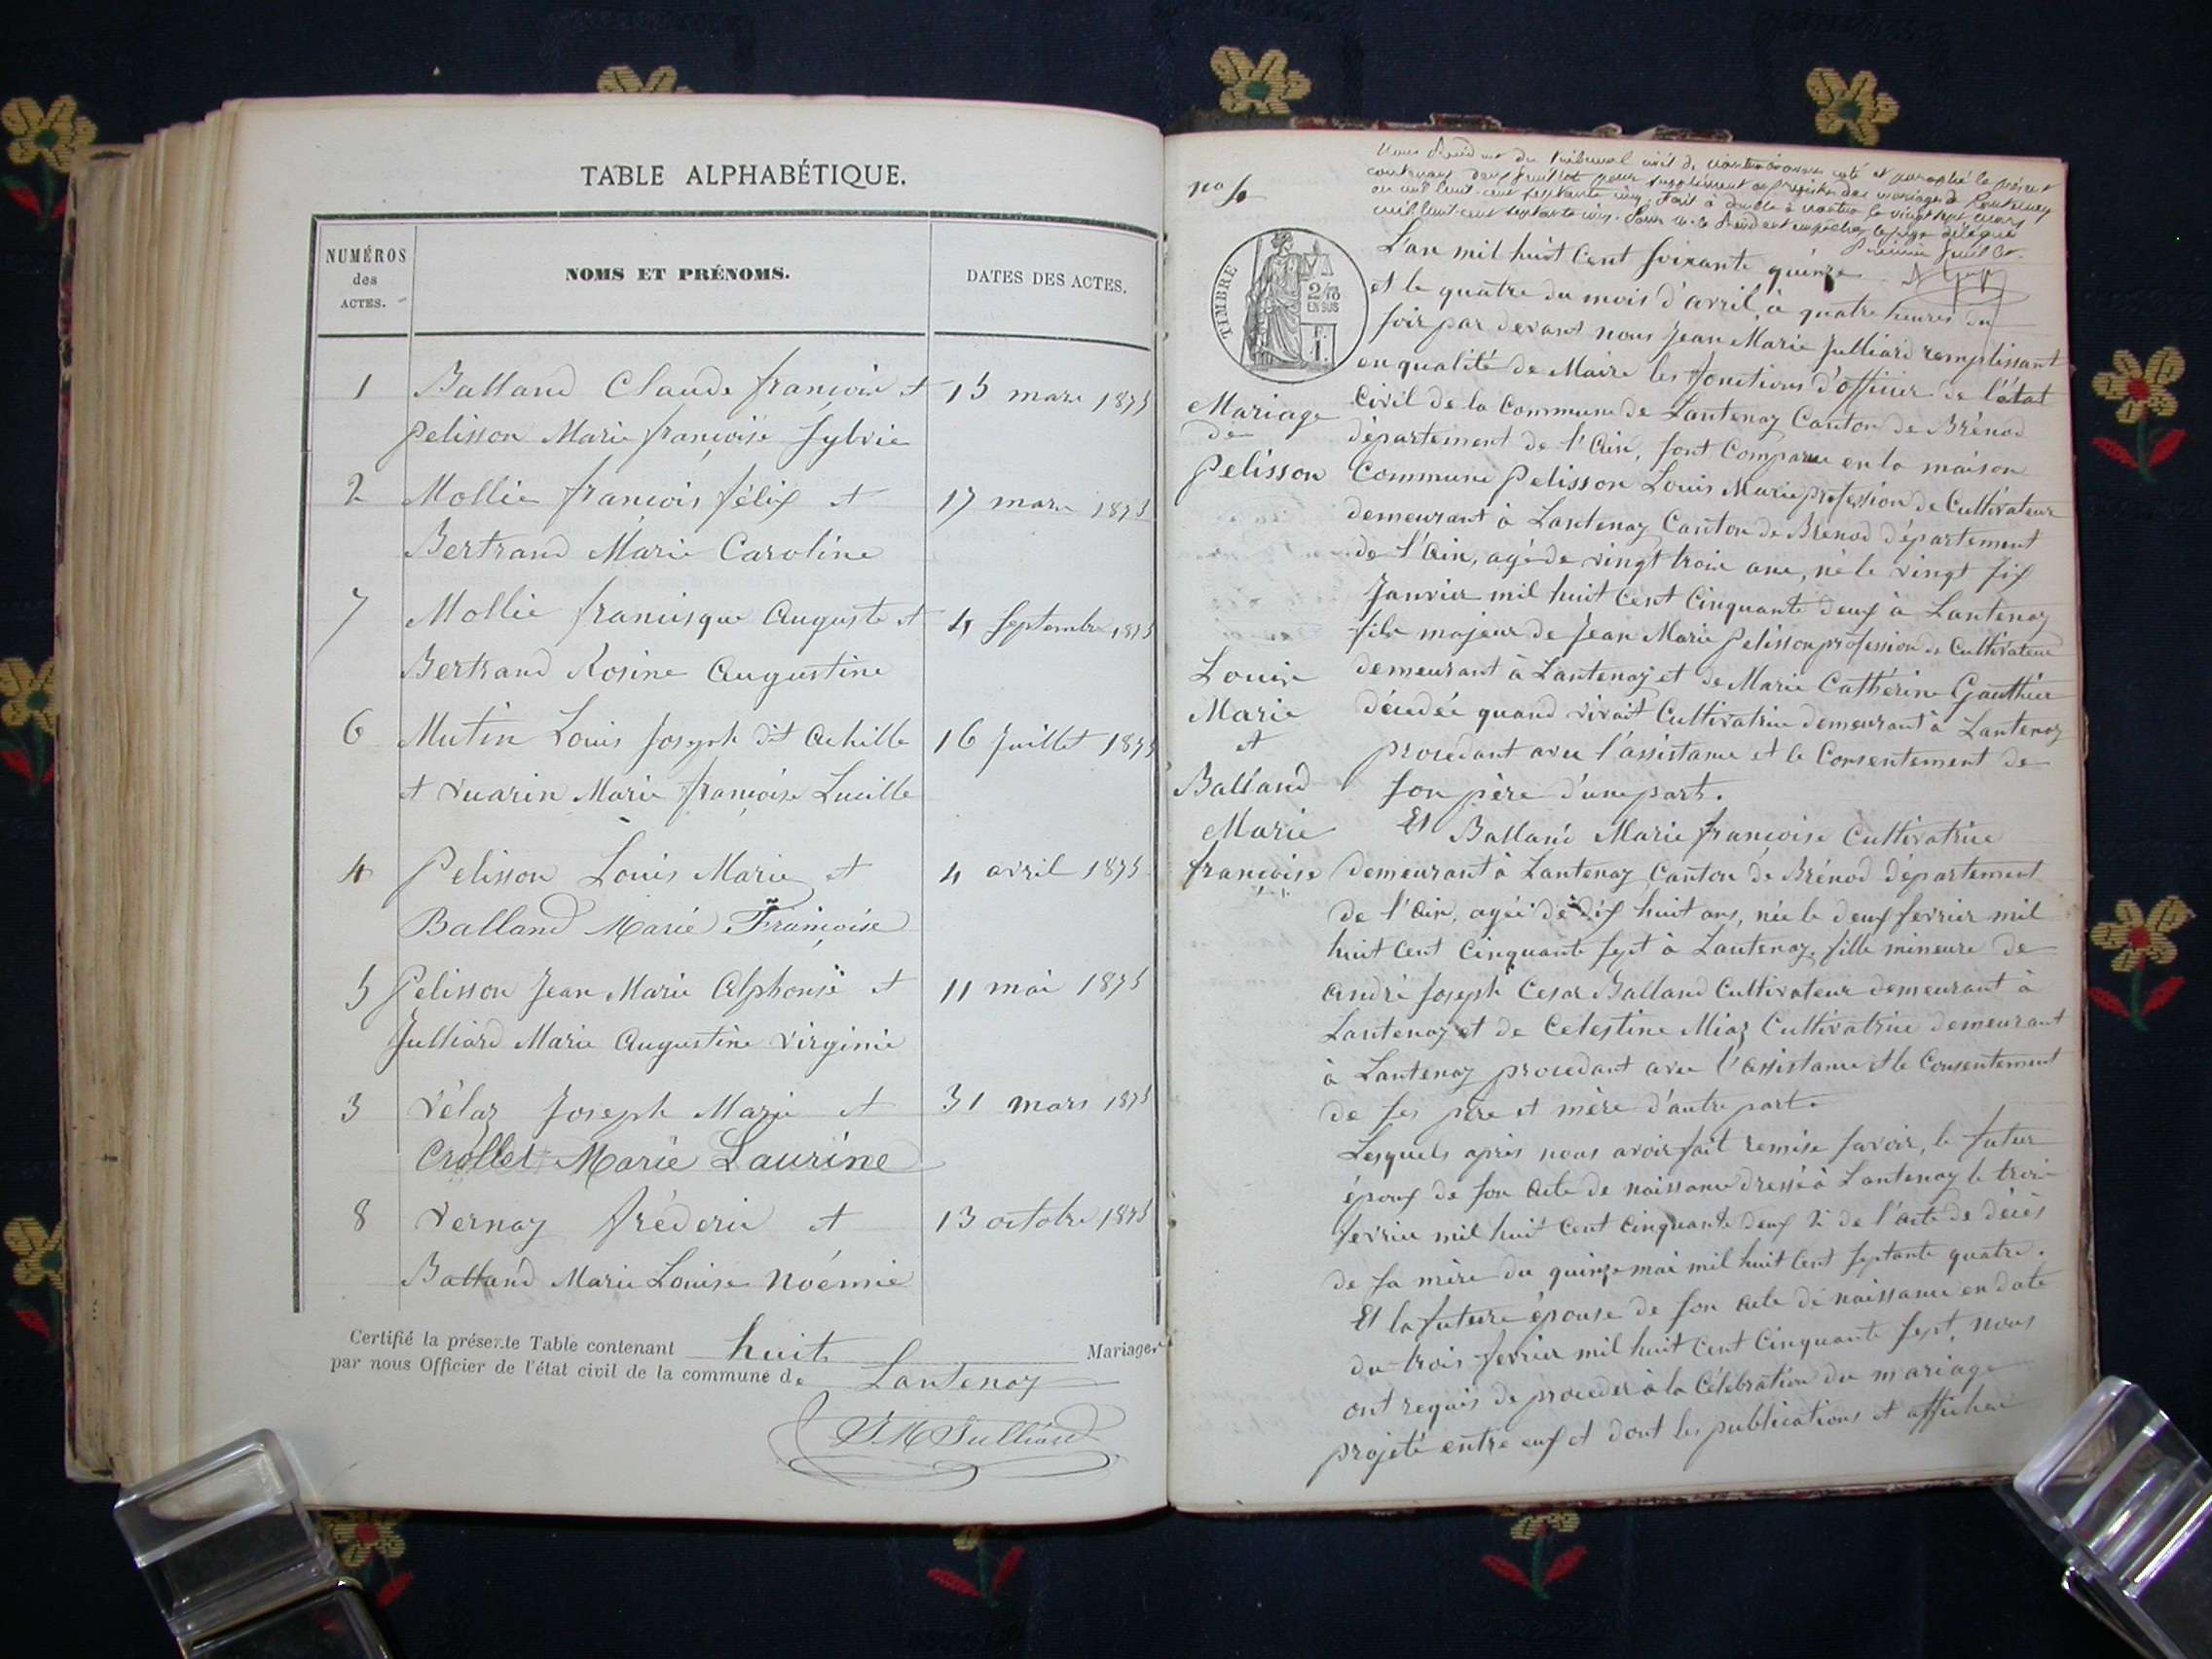 TABLE ALPHABÉTIQUE.
NUMÉROS
des
ACTES.
NOMS ET PRÉNOMS.
DATES DES ACTES.
1 Balland Claude françois et 15 mars 1875
Pelisson Marie françoise Sylvie
2 Mollie françois félix et 17 mars 1875
Bertrand Marie Caroline
7 Mollie francisque Auguste et 4 Septembre 1875
Bertrand Rosine Augustine
6 Mutin Louis Joseph dit Achille 16 Juillet 1875
et Vuarin Marie françoise Lucille
4 Pelisson Louis Marie et 4 avril 1875
Balland Marie Françoise
5 Pelisson Jean Marie Alphonse et 11 mai 1875
Julliard Marie Augustine Virginie
3 Vélaz Joseph Marie et 31 mars 1875
Crollet Marie Laurine
8 Vernay fréderic et 13 octobre 1875
Balland Marie Louise Noémie
Certifié la présente Table contenant huit Mariages
par nous Officier de l'état civil de la commune de Lantenay
JM Julliard
no 4
TIMBRE
2/10
EN SUS
1 F.
Mariage
de
Pelisson
Louis
Marie
et
Balland
Marie
françoise
L'an mil huit Cent soixante quinze
et le quatre du mois d'avril, à quatre heures du
soir par devant nous Jean Marie Julliard remplissant
en qualité de Maire les fonctions d'officier de l'état
Civil de la Commune de Lantenay Canton de Brénod
département de l'Ain, sont Comparu en la maison
Commune Pelisson Louis Marie profession de Cultivateur
demeurant à Lantenay Canton de Brenod département
de l'Ain, agé de vingt trois ans, né le vingt six
Janvier mil huit Cent Cinquante deux à Lantenay
fils majeur de Jean Marie Pelisson profession de Cultivateur
demeurant à Lantenay et de Marie Cathérine Gauthier
décédée quand vivait Cultivatrice demeurant à Lantenay
procedant avec l'assistance et le Consentement de
son père d'une part.
Et Balland Marie françoise Cultivatrice
demeurant à Lantenay Canton de Brénod département
de l'Ain, agée de dix huit ans, née le deux fevrier mil
huit Cent Cinquante sept à Lantenay, fille mineure de
André Joseph Cesar Balland Cultivateur demeurant à
Lantenay et de Celestine Miaz Cultivatrice demeurant
à Lantenay procedant avec l'assistance et le Consentement
de ses père et mère d'autre part.
Lesquels après nous avoir fait remise savoir, le futur
époux de son acte de naissance dressé à Lantenay le trois
fevrier mil huit Cent Cinquante deux 2° de l'acte de décès
de sa mère du quinze mai mil huit Cent septante quatre.
Et la future épouse de son acte de naissance en date
du trois fevrier mil huit Cent Cinquante sept, nous
ont requis de proceder à la Célébration du mariage
projeté entre eux et dont les publications et affiches